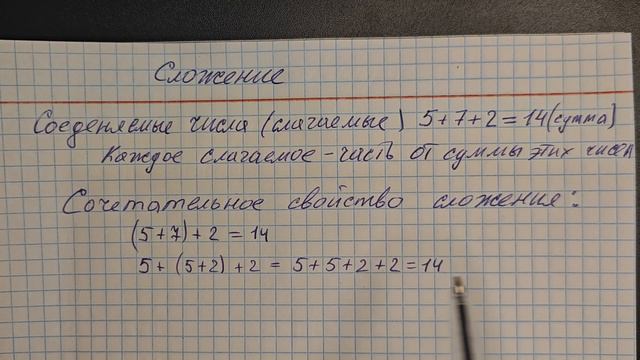 Сложение
Соеденяемые числа (слагаемые) 5+7+2=14(сумма)
Каждое слагаемое - часть от суммы этих чисел
Сочетательное свойство сложения:
(5+7)+2=14
5+(5+2)+2=5+5+2+2=14